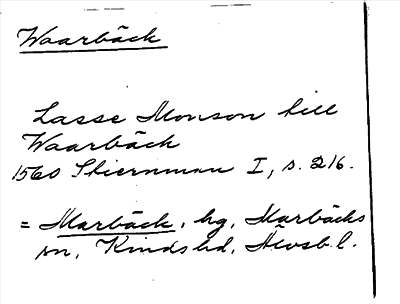 Waarbäck
Lasse Monson till
Waarbäck
1560 Stiernman I, s. 216.
= Marbäck, hg, Marbäcks
sn, Kinds hd, Älvsb. l.